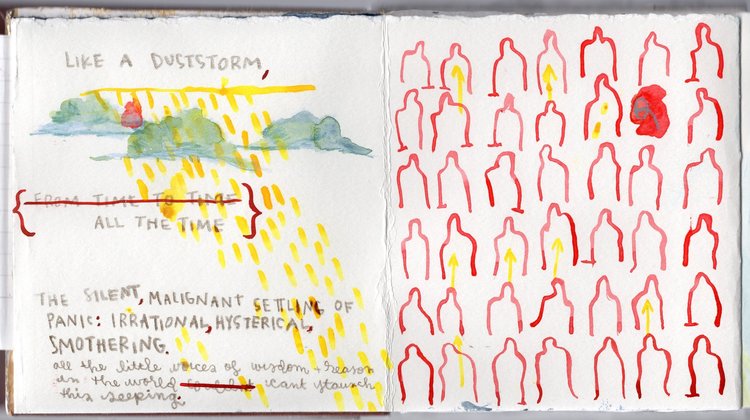 LIKE A DUSTSTORM,
FROM TIME TO TIME
ALL THE TIME
THE SILENT, MALIGNANT SETTLING OF
PANIC: IRRATIONAL, HYSTERICAL,
SMOTHERING.
all the little voices of wisdom + reason
in the world cant staunch
this seeping.